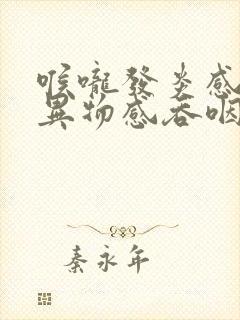 喉嚨發炎感
異物感吞咽
秦永年